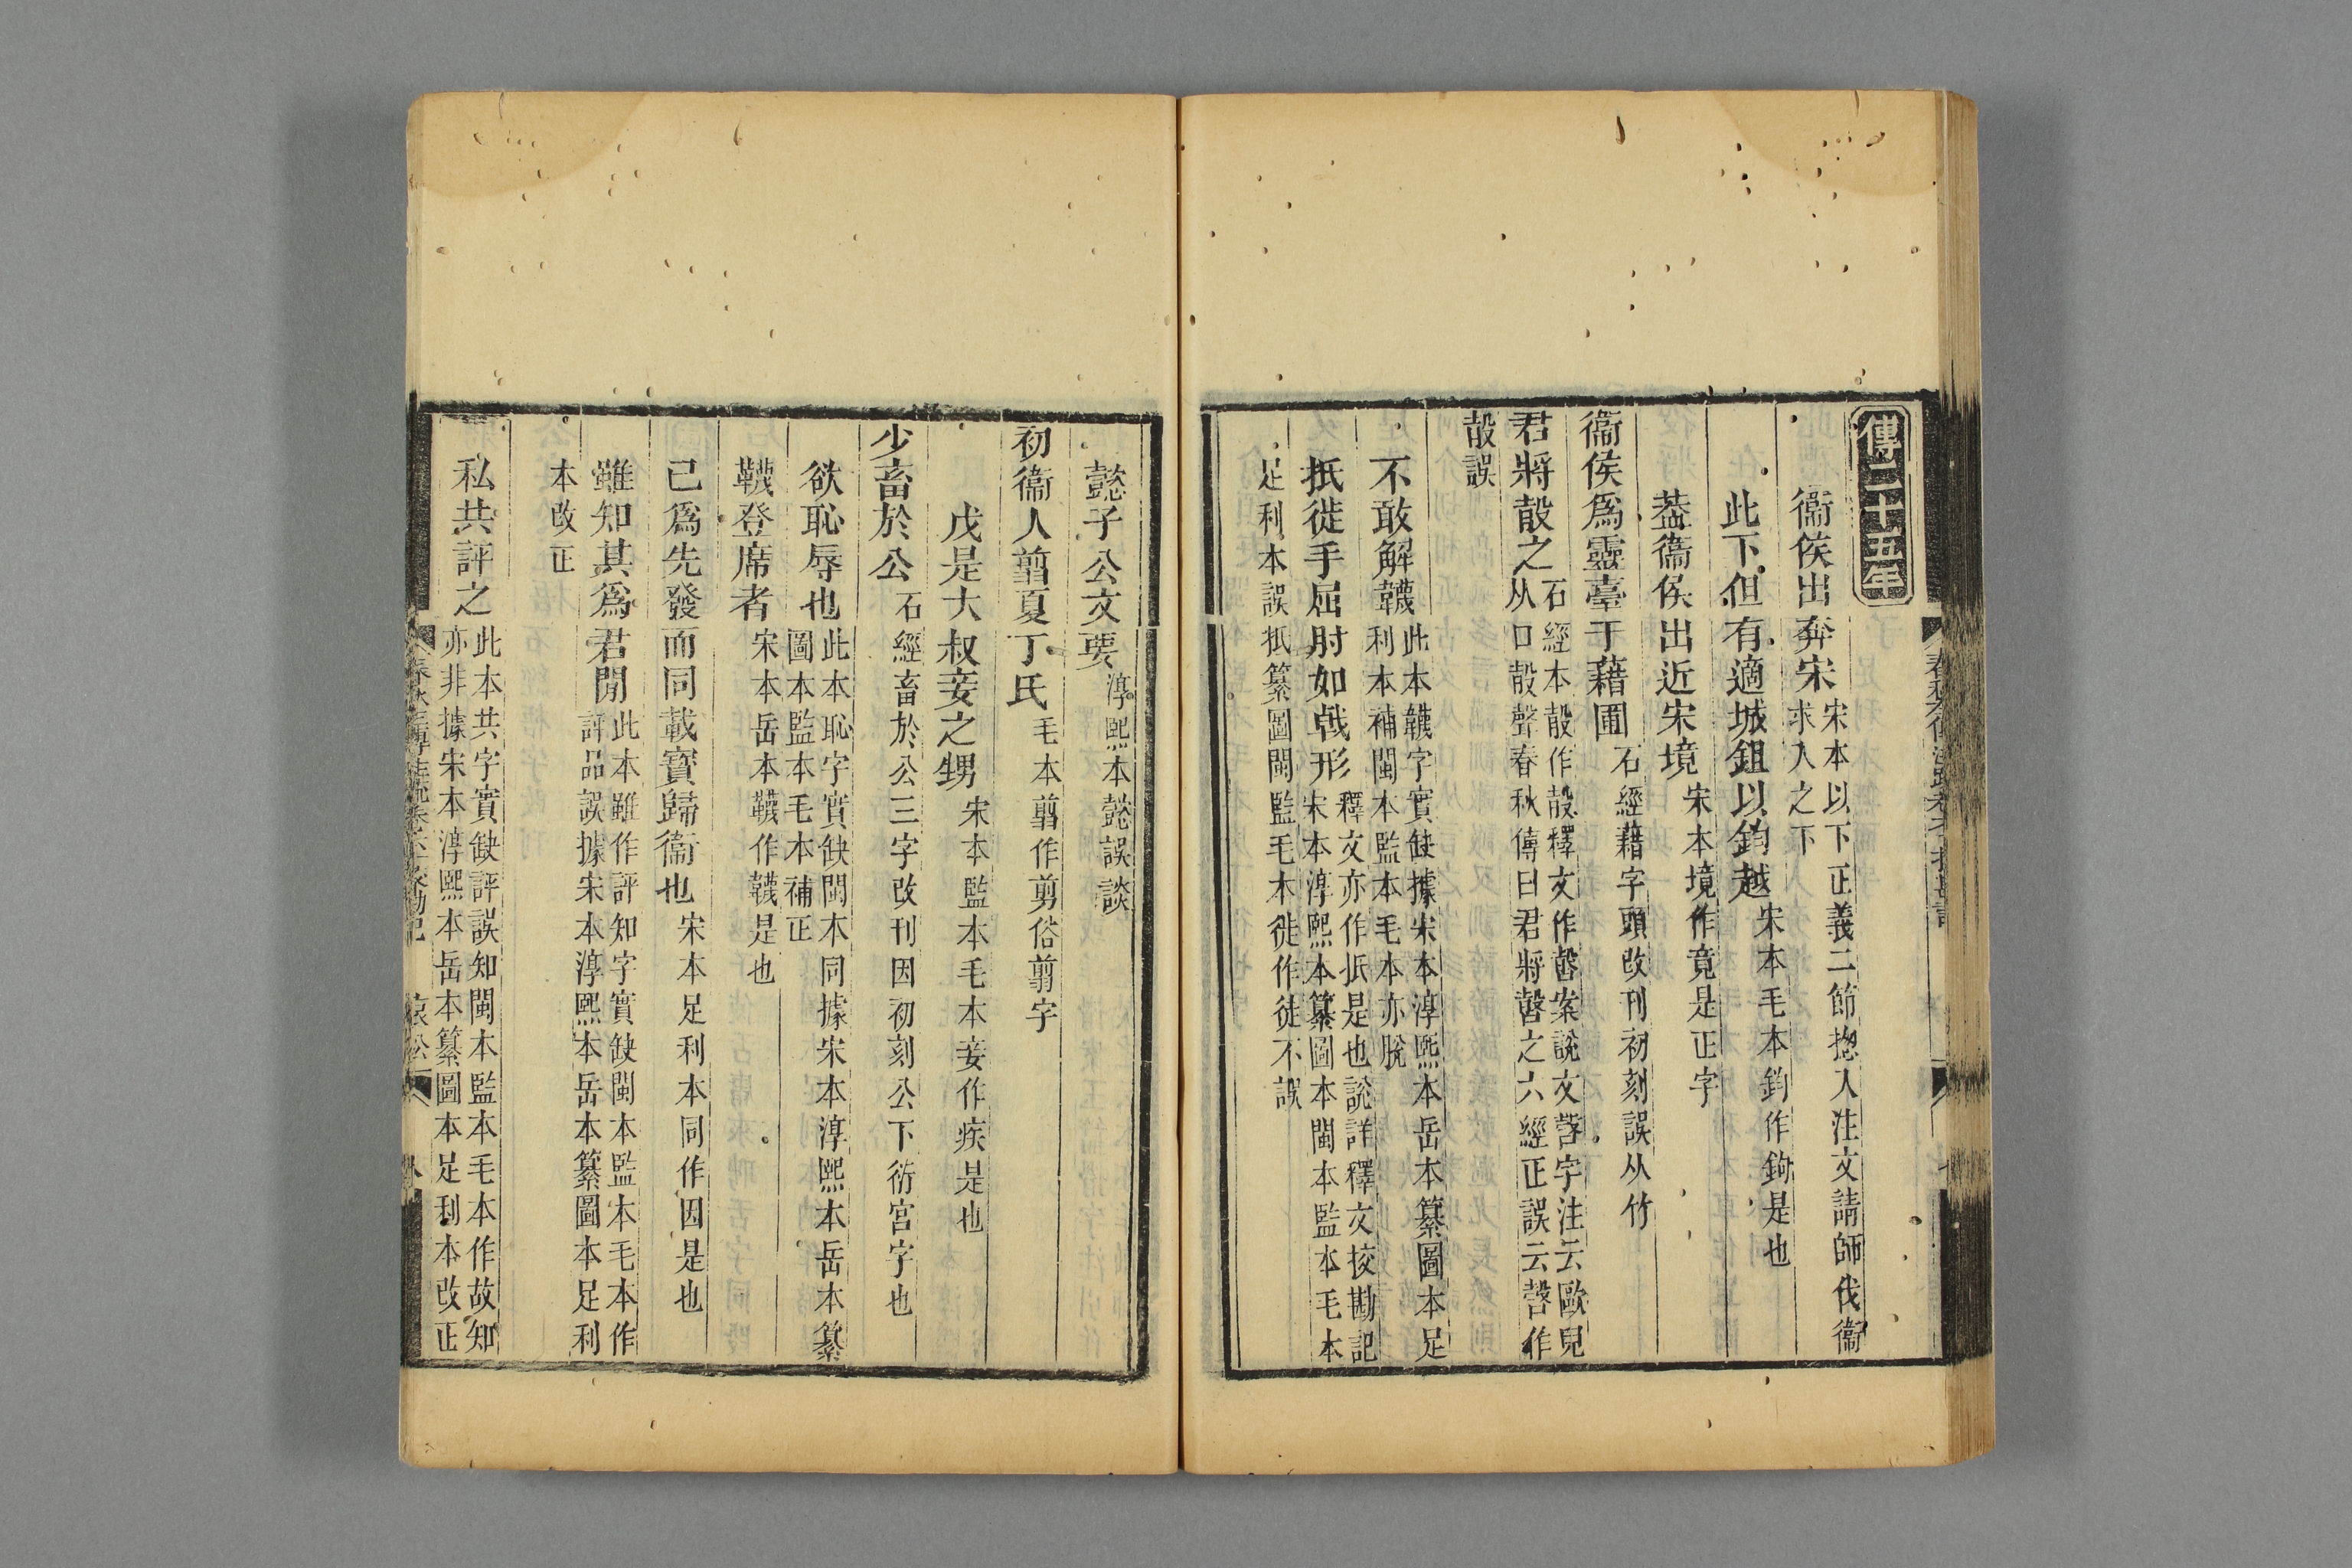 傳二十五年
衞侯出奔宋宋本以下正義二節揔入注文請師伐衞
求入之下
此下但有適城鉏以鈞越宋本毛本鈞作鉤是也
葢衞侯出近宋境宋本境作竟是正字
衞侯爲靈臺于藉圃石經藉字頭改刊初刻誤从竹
君將㱿之石經本㱿作㱿釋文作㱿案說文㱿字注云歐皃
从口㱿聲春秋傳曰君將㱿之六經正誤云㱿作
㱿誤
不敢解韤此本韤字實缺據宋本淳熙本岳本纂圖本足
利本補閩本監本毛本亦脫
抵徙手屈肘如戟形釋文亦作抵是也說詳釋文挍勘記
宋本淳熙本纂圖本閩本監本毛本
足利本誤扺纂圖閩監毛本徙作徒不誤
懿子公文要淳熙本懿誤談
初衞人翦夏丁氏毛本翦作剪俗翦字
戊是大叔妾之甥宋本監本毛本妾作疾是也
少畜於公石經畜於公三字改刊因初刻公下衍宮字也
欲恥辱也此本恥字實缺閩本同據宋本淳熙本岳本纂
圖本監本毛本補正
韈登席者宋本岳本韈作韤是也
已爲先發而同載寶歸衞也宋本足利本同作因是也
雖知其爲君閒此本雖作評知字實缺閩本監本毛本作
評品誤據宋本淳熙本岳本纂圖本足利
本改正
私共評之此本共字實缺評誤知閩本監本毛本作故知
亦非據宋本淳熙本岳本纂圖本足利本改正